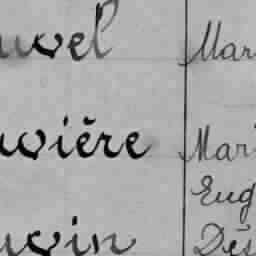 uvel Mar
uvière Mari
Eug
uvin Dés